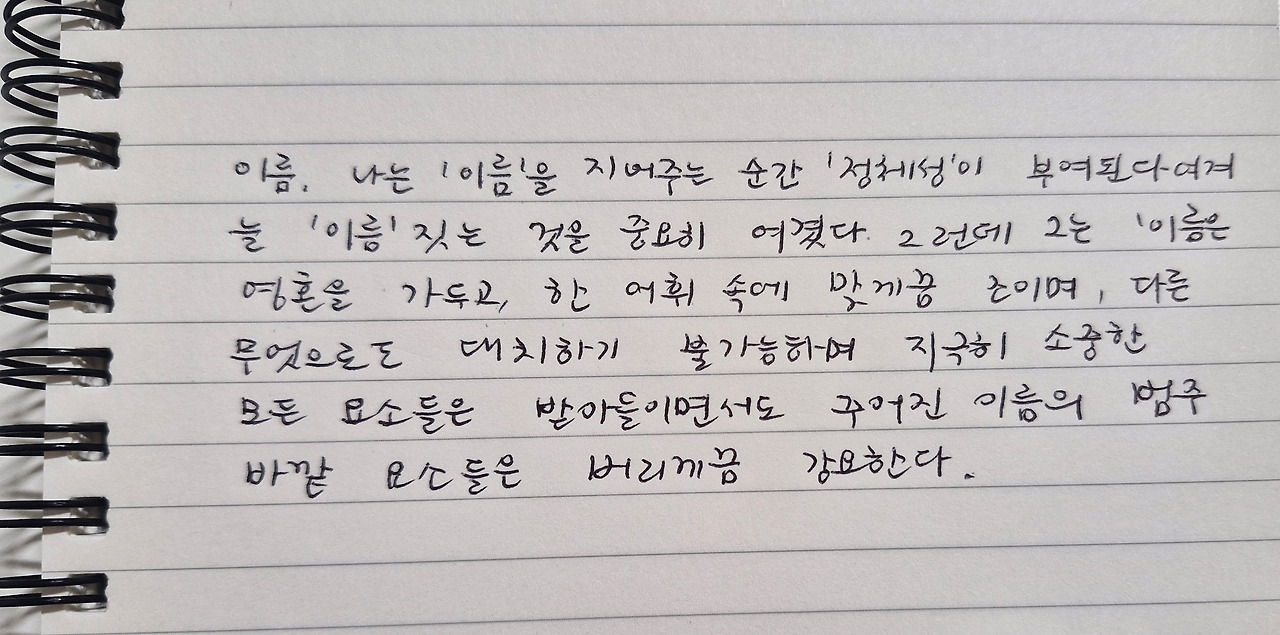 이름. 나는 '이름'을 지어주는 순간 '정체성'이 부여된다 여겨
늘 '이름' 짓는 것을 중요히 여겼다. 그런데 그는 '이름은
영혼을 가두고, 한 어휘 속에 맞게끔 조이며, 다른
무엇으로도 대치하기 불가능하며 지극히 소중한
모든 요소들은 받아들이면서도 주어진 이름의 범주
바깥 요소들은 버리게끔 강요한다.